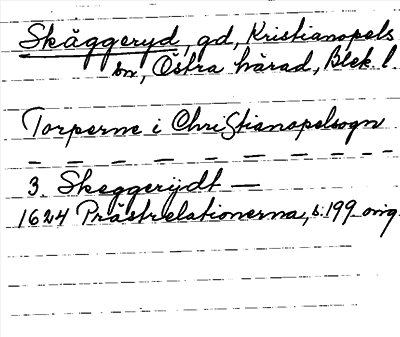 Skäggeryd, gd, Kristianopels
sn, Östra härad, Blek. l.
Torperne i Christianopelsogn
— — — — — — — — —
3. Skeggerijdt —
1624 Prästrelationerna, s. 199 orig.